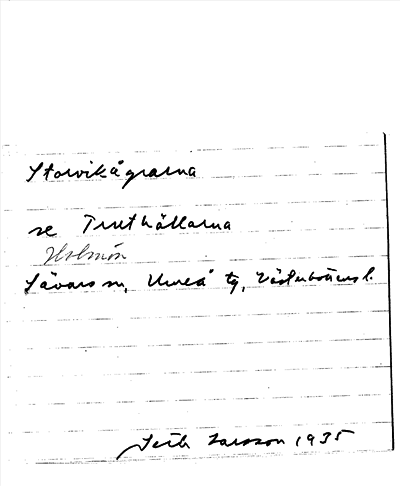 Storvikågrarna
se Truthällarna
Holmön
Sävars sn, Umeå tg, Västerbottens l.
Larsson 1935